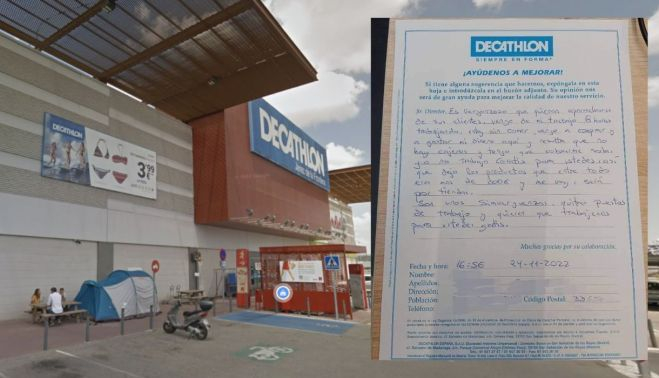 DECATHLON
3,99
DECATHLON
Jerez de la Frontera
DECATHLON
SIEMPRE EN FORMA
¡AYÚDENOS A MEJORAR!
Si tiene alguna sugerencia que hacernos, expóngala en esta
hoja e introdúzcala en el buzón adjunto. Su opinión nos
será de gran ayuda para mejorar la calidad de nuestro servicio.
Sr. Director: Es vergonzoso que quieran aprovecharse
de sus clientes, vengo de mi trabajo 8 horas
trabajando, voy sin comer vengo a comprar y
a gastar mi dinero aquí y resulta que no
hay cajeros y tengo que cobrarme
yo. Trabajo Gratis para ustedes,
que dejo los productos que entre todo
eran mas de 200€ y me voy,
por tiendas.
Son unos Sinverguenzas, quitan puestos
de trabajo y quieren que trabajemos
para ustedes gratis.
Muchas gracias por su colaboración.
Fecha y hora: 16:56 24-11-2022
Nombre:
Apellidos:
Dirección:
Población Código Postal:
Teléfono: